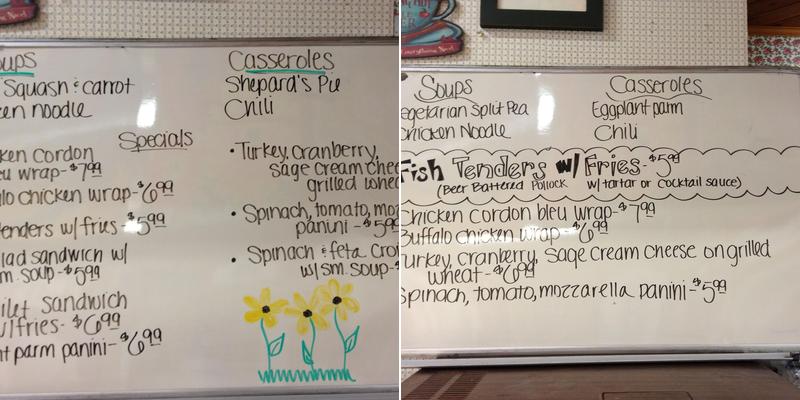 Casseroles
Squash & carrot
Shepard's Pie
noodle
Chili
Specials
Cordon
wrap-$7.99
chicken wrap-$6.99
w/fries-$5.99
sandwich w/
soup-$5.99
Sandwich
w/fries-$6.99
parm panini-$6.99
• Turkey, cranberry,
sage cream
grilled
• Spinach, tomato,
panini-
• Spinach & feta
w/sm. soup-
Soups
Casseroles
Vegetarian Split Pea
Eggplant parm
Chicken Noodle
Chili
Fish Tenders w/ Fries-$5.99
(Beer Battered Pollock w/tartar or cocktail sauce)
Chicken cordon bleu wrap-$7.99
Buffalo chicken wrap-$6.99
Turkey, cranberry, sage cream cheese on grilled
wheat-$6.99
Spinach, tomato, mozzarella panini-$5.99